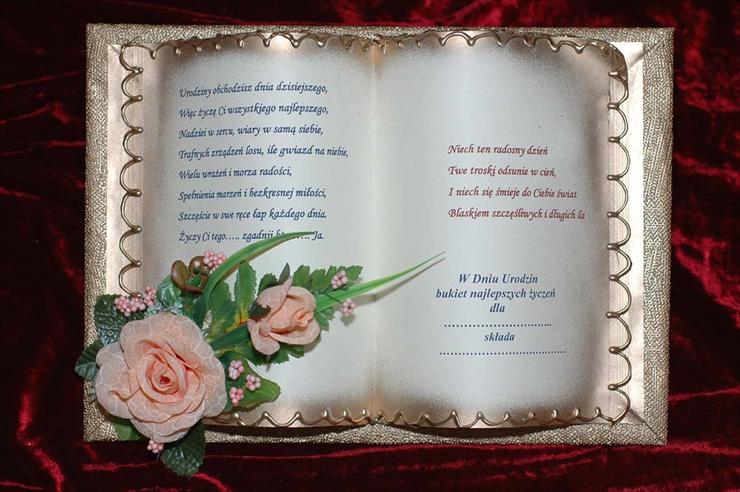 Urodziny obchodzisz dnia dzisiejszego,
Więc życzę Ci wszystkiego najlepszego,
Nadziei w sercu, wiary w samą siebie,
Trafnych zrządzeń losu, ile gwiazd na niebie,
Wielu wrażeń i morza radości,
Spełnienia marzeń i bezkresnej miłości,
Szczęście w swe ręce łap każdego dnia.
Życzy Ci tego….. zgadnij Ja.
Niech ten radosny dzień
Twe troski odsunie w cień,
I niech się śmieje do Ciebie świat
Blaskiem szczęśliwych i długich la
W Dniu Urodzin
bukiet najlepszych życzeń
dla
................................
składa
................................